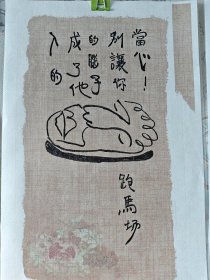 當心！
別讓你
的腦子
成了他
人的
跑馬場